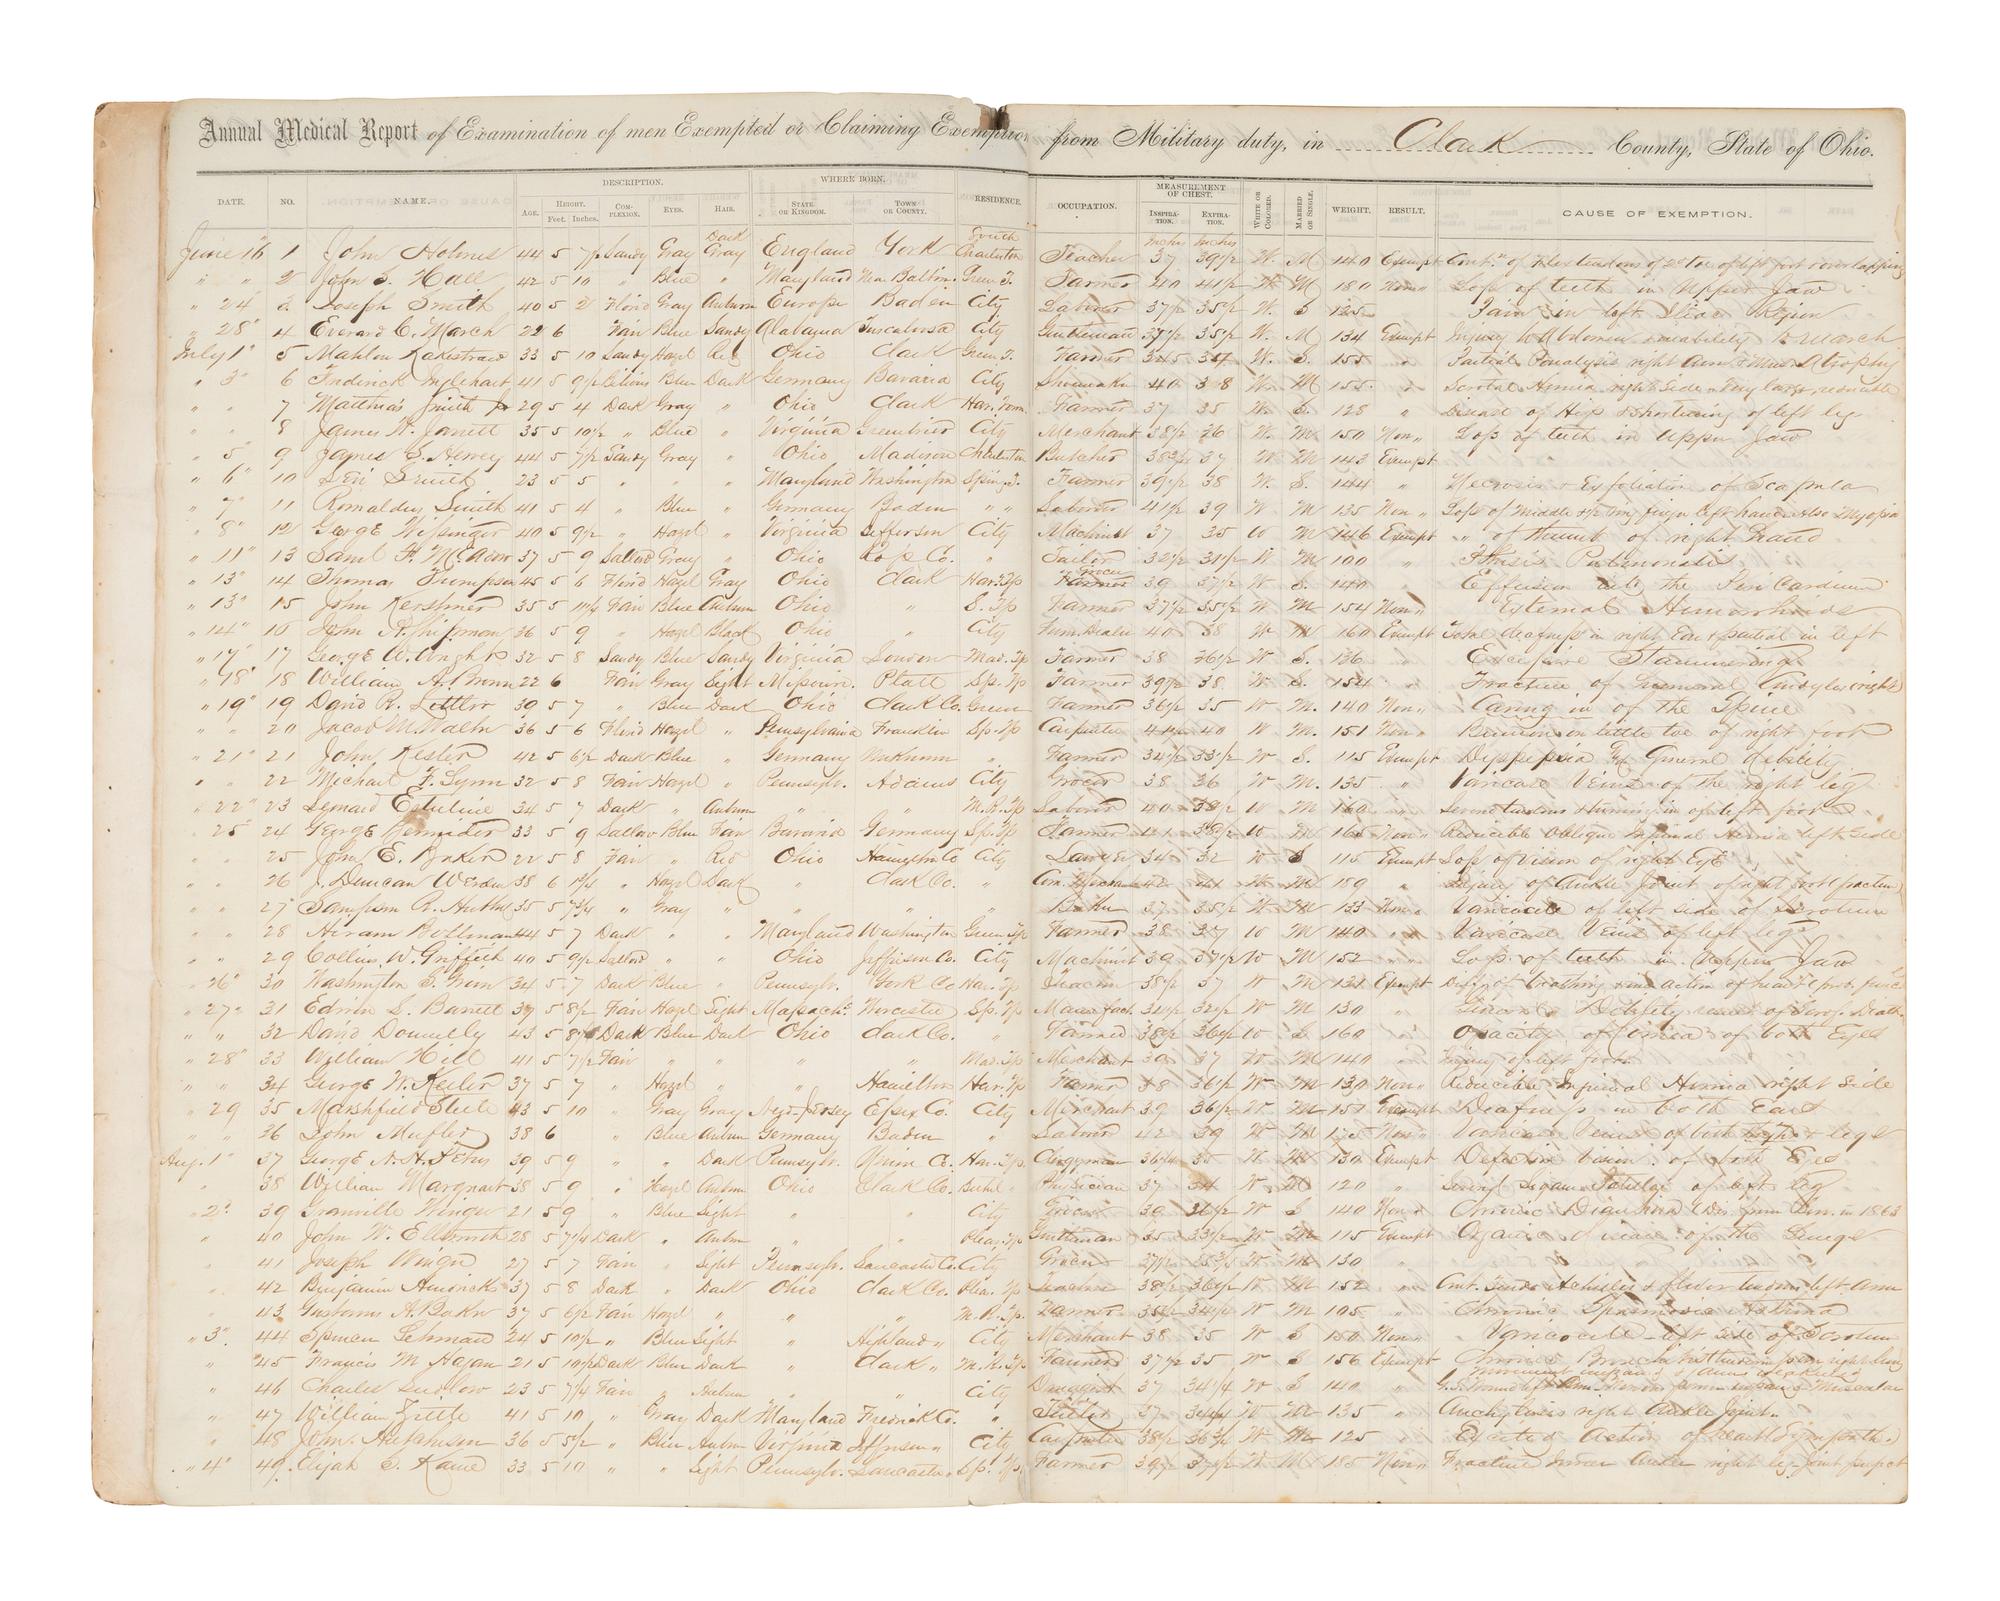 Annual Medical Report of Examination of men Exempted or Claiming Exemption from Military duty, in Clark County, State of Ohio.
DATE. NO. NAME. DESCRIPTION. AGE. HEIGHT. Feet. Inches. COMPLEXION. EYES. HAIR. WHERE BORN. STATE OR KINGDOM. TOWN OR COUNTY. RESIDENCE. OCCUPATION. MEASUREMENT OF CHEST. INSPIRATION. EXPIRATION. WHITE OR COLORED. MARRIED OR SINGLE. WEIGHT. RESULT. CAUSE OF EXEMPTION.
June 16 1 John Holmes 44 5 7½ Sandy Gray Dark Gray England York South Charleston Teacher 37 39½ W. M 140 Exempt
" " 2 John S. Hall 42 5 10 " Blue " Maryland Near Baltim. Green T. Farmer 40 41½ W M 180 Non " Loss of teeth in Upper Jaw
" 24 3 Joseph Smith 40 5 2 Florid Gray Auburn Europe Baden City Laborer 37½ 35½ W. S 125 Pain in left Iliac Region
" 28" 4 Everard C. March 22 6 Fair Blue Sandy Alabama Tuscaloosa City Gentleman 37½ 35½ W. M 134 Exempt Injury to Abdomen & inability to March
July 1" 5 Mahlon Rakestraw 33 5 10 Sandy Hazel Red Ohio Clark Green T. Farmer 34 W. S. 155 " Partial Paralysis right Arm & Mus. Atrophy
" 3" 6 Frederick Inglehart 41 5 9½ Blue Dark Germany Bavaria City Shoemaker 40 38 W. M 155 " Scrotal Hernia right Side - Very large, reducible
" " 7 Matthias Smith Jr 29 5 4 Dark Gray " Ohio Clark Har. Town. Farmer 37 35 W. S. 128 " Disease of Hip & shortening of left leg
" " 8 James W. Jarrett 35 5 10½ " Blue " Virginia Greenbrier City Merchant 38½ 36 W. M 150 Non " Loss of teeth in Upper Jaw
" 5 9 James S. Hervey 44 5 7½ Sandy Gray " Ohio Madison Charleston Butcher 38¾ 37 W M 143 Exempt
" 6" 10 Levi Smith 23 5 5 " " " Maryland Washington Spring. T. Farmer 39½ 38 W. S. 144 " Necrosis & Exfoliation of Scapula
" 7" 11 Romaldus Smith 41 5 4 " Blue " Germany Baden " " Laborer 41½ 39 W M 135 Non " Loss of Middle & ring finger left hand. Also Myopia
" 8" 12 George Wissinger 40 5 9½ " Hazel " Virginia Jefferson City Machinist 37 35 W M 146 Exempt " of thumb of right Hand
" 11" 13 Saml H. McCaron 37 5 9 Sallow Gray " Ohio Ross Co. " Tailor 32½ 31½ W M 100 " Phthisis Pulmonalis
" 13" 14 Thomas Thompson 45 5 6 Florid Hazel Gray Ohio Clark Har. Tp Grocer 39 37½ W S. 140 " Effusion into the Pericardium
" 13" 15 John Kershner 35 5 10¼ Fair Blue Auburn Ohio " S. Tp Farmer 37½ 35½ W M 154 Non " External Hemorrhoids
" 14" 16 John A. Shipman 36 5 9 " Hazel Black Ohio " City Furn. Dealer 40 38 W M 160 Exempt Total deafness in right Ear & partial in left
" 17" 17 George W. Wright 32 5 8 Sandy Blue Sandy Virginia Louden Mad. Tp Farmer 38 36½ W S. 136 " Excessive Stammering
" 18" 18 William A. Brown 22 6 Fair Gray Light Missouri. Platt Sp. Tp Farmer 39½ 38 W S. 154 " Fracture of Humeral Condyles (right)
" 19" 19 David R. Littler 39 5 7 " Blue Dark Ohio Clark Co. Green Farmer 36½ 35 W M. 140 Non " Caring in of the Spine
" " 20 Jacob M. 36 5 6 Florid Hazel " Pennsylvania Franklin Sp. Tp Carpenter 40 W M. 151 Non " Bunion on little toe of right foot
" 21" 21 John Kester 42 5 6½ Dark Blue " Germany Unknown " Farmer 34½ 33½ W S. 115 Exempt Dyspepsia & General debility
" " 22 Michael F. Lynn 32 5 8 Fair Hazel " Pennsylv. Adams City Grocer 38 36 W M. 135 " Varicose Veins of the right leg
" 22" 23 Leonard 34 5 7 Dark " Auburn " " M.R. Tp Laborer 40 38½ W M 160 " left foot
" 25" 24 George 33 5 9 Sallow Blue Fair Bavaria Germany Sp. Tp Farmer 41 W M 165 Non " Reducible Oblique Inguinal Hernia left side
" " 25 John E. Baker 22 5 8 Fair " Red Ohio Hamilton Co City Lawyer 34 32 W S 115 Exempt Loss of Vision of right Eye
" " 26 J. Duncan Werden 38 6 " Hazel Dark " Clark Co. " Com. Merchant 42 41 W M 189 " Injury of Ankle Joint of right foot (fracture)
" " 27 Sampson R. 35 5 7¾ " Gray " " " " 37 35½ W M 133 Non " Varicocele of left side of scrotum
" " 28 Hiram Bollman 44 5 7 Dark " " Maryland Washington Green Tp Farmer 38 37 W M 140 " Varicose Veins of left leg
" " 29 Collins W. Griffith 40 5 9½ Sallow " " Ohio Jefferson Co. City Machinist 39 37½ W M 152 " Loss of teeth in Upper Jaw
" 26" 30 Washington S. 34 5 7 Dark Blue " Pennsylv. York Co Har. Tp 38½ 37 W M 131 Exempt
" 27" 31 Edwin S. Barrett 37 5 8½ Fair Hazel Light Massachs. Worcester Sp. Tp Manufact. 34½ 32½ W M 130 "
" " 32 David Donnelly 43 5 8½ Dark Blue Dark Ohio Clark Co. " Farmer 38½ 36½ W S 160 " Opacity of Cornea of both Eyes
" 28" 33 William Hill 41 5 7½ Fair " " " " Mad. Tp Merchant 39 37 W M 140 " Injury of left foot.
" " 34 George W. Keifer 37 5 7 " Hazel " " Hamilton Har. Tp Farmer 38 36½ W M 130 Non " Reducible Inguinal Hernia right Side
" 29 35 Marshfield Steele 43 5 10 " Gray Gray New-Jersey Essex Co. City Merchant 39 36½ W M 151 Exempt Deafness in both Ears
" " 36 John Musler 38 6 " Blue Auburn Germany Baden " Laborer 42 39 W M 175 Non " Varicose Veins of both legs
Aug. 1" 37 George N. H. Peters 39 5 9 " " Dark Pennsylv. Union Co. Har. Tp. Clergyman 36¼ 35 W. M 130 Exempt Defective Vision of both Eyes
" 38 William Marquart 38 5 9 " Hazel Auburn Ohio Clark Co. Bethel " Physician 37 34 W M 120 " left leg
" 2" 39 Granville Winger 21 5 9 " Blue Light " " City Grocer 39 36½ W S 140 Non " Chronic Diarrhoea
" 40 John W. Ellsworth 28 5 7¼ Dark " Auburn " " Pleas. Tp Gentleman 35 33½ W M 115 Exempt Organic disease of the Lungs
" 41 Joseph Winger 27 5 7 Fair " Light Pennsylv. Lancaster Co. City Grocer W M 130 "
" 42 Benjamin Hendricks 37 5 8 Dark " Dark Ohio Clark Co. Pleas. Tp Teacher 38½ 36½ W M 152 "
" 43 Gustavus A. Baker 37 5 6½ Fair Hazel " " " M.R. Tp. Farmer 35½ 34¼ W M 105 " Chronic Spasmodic Asthma
" 3" 44 Spencer Lehman 24 5 10½ " Blue Light " Highland " City Merchant 38 35 W S 150 Non " Varicocele - left Side of Scrotum
" 45 Francis M Hagan 21 5 10½ Dark Blue Dark " Clark " M.R. Tp Farmer 37½ 35 W S 156 Exempt
" 46 Charles Ludlow 23 5 7¼ Fair " Auburn " " City Druggist 37 34¼ W S 140 "
" 47 William Zittle 41 5 10 " Gray Dark Maryland Frederick Co. " 37 34¼ W M 135 " Anchylosis right Ankle Joint.
" 48 John Hutchinson 36 5 5½ " Blue Auburn Virginia Jefferson " City Carpenter 38½ 36¾ W M 125 " Excited Action of heart (Sympath.)
" 4" 49 Elijah S. Kane 33 5 10 " " Light Pennsylv. Lancaster " Sp. Tp. Farmer 39½ 37½ W M 185 Non "